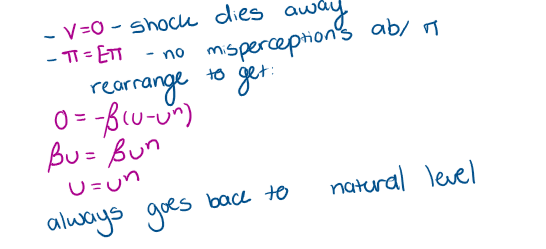 - v=0 - shock dies away
- π = Eπ - no misperceptions ab/ π
rearrange to get:
0 = -β(u-uⁿ)
βu = βuⁿ
u = uⁿ
always goes back to natural level